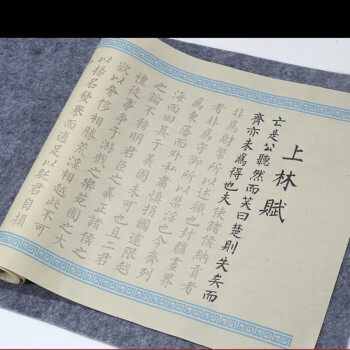 上林賦
亡是公聽然而笑曰楚則失矣而
齊亦未為得也夫使諸侯納貢者
非為財幣所以述職也封疆畫界
者非為守禦所以禁淫也今齊列
為東藩而外私肅慎捐國逾限越
海而田其于義固未可也且二君
之論不務明君臣之義正諸侯之
禮徒事爭于游戲之樂苑囿之大
欲以奢侈相勝荒淫相越此不可
以揚名發譽而適足以貶君自損